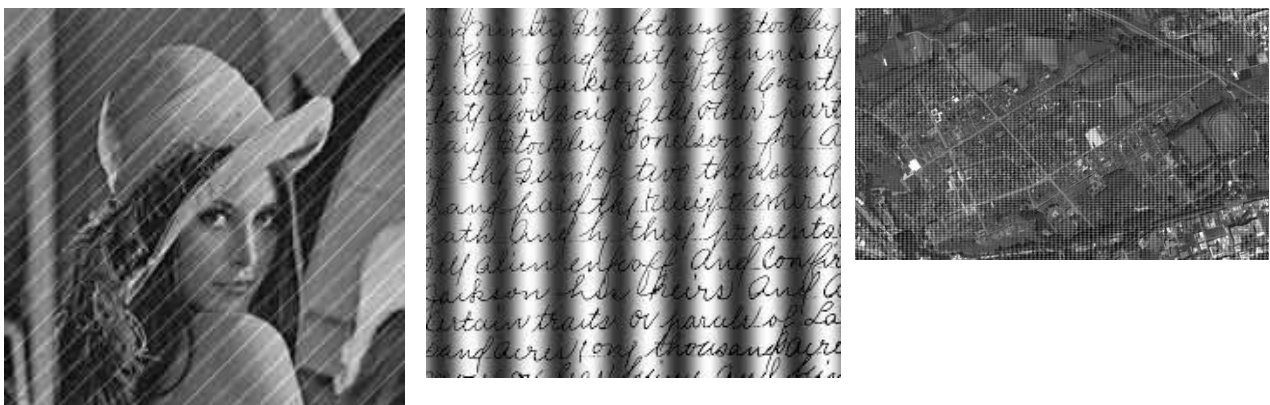 and ninety Six between Stockley
Knox And State of Tennessee
Andrew Jackson of the County
State aforesaid of the other part
said Stockley Donelson for A
of the Sum of two thousand
hand paid the receipt where
hath And by these presents
alien enfeoff And Confir
Jackson his heirs And A
certain traits or parcels of La
sand acres one thousand acre